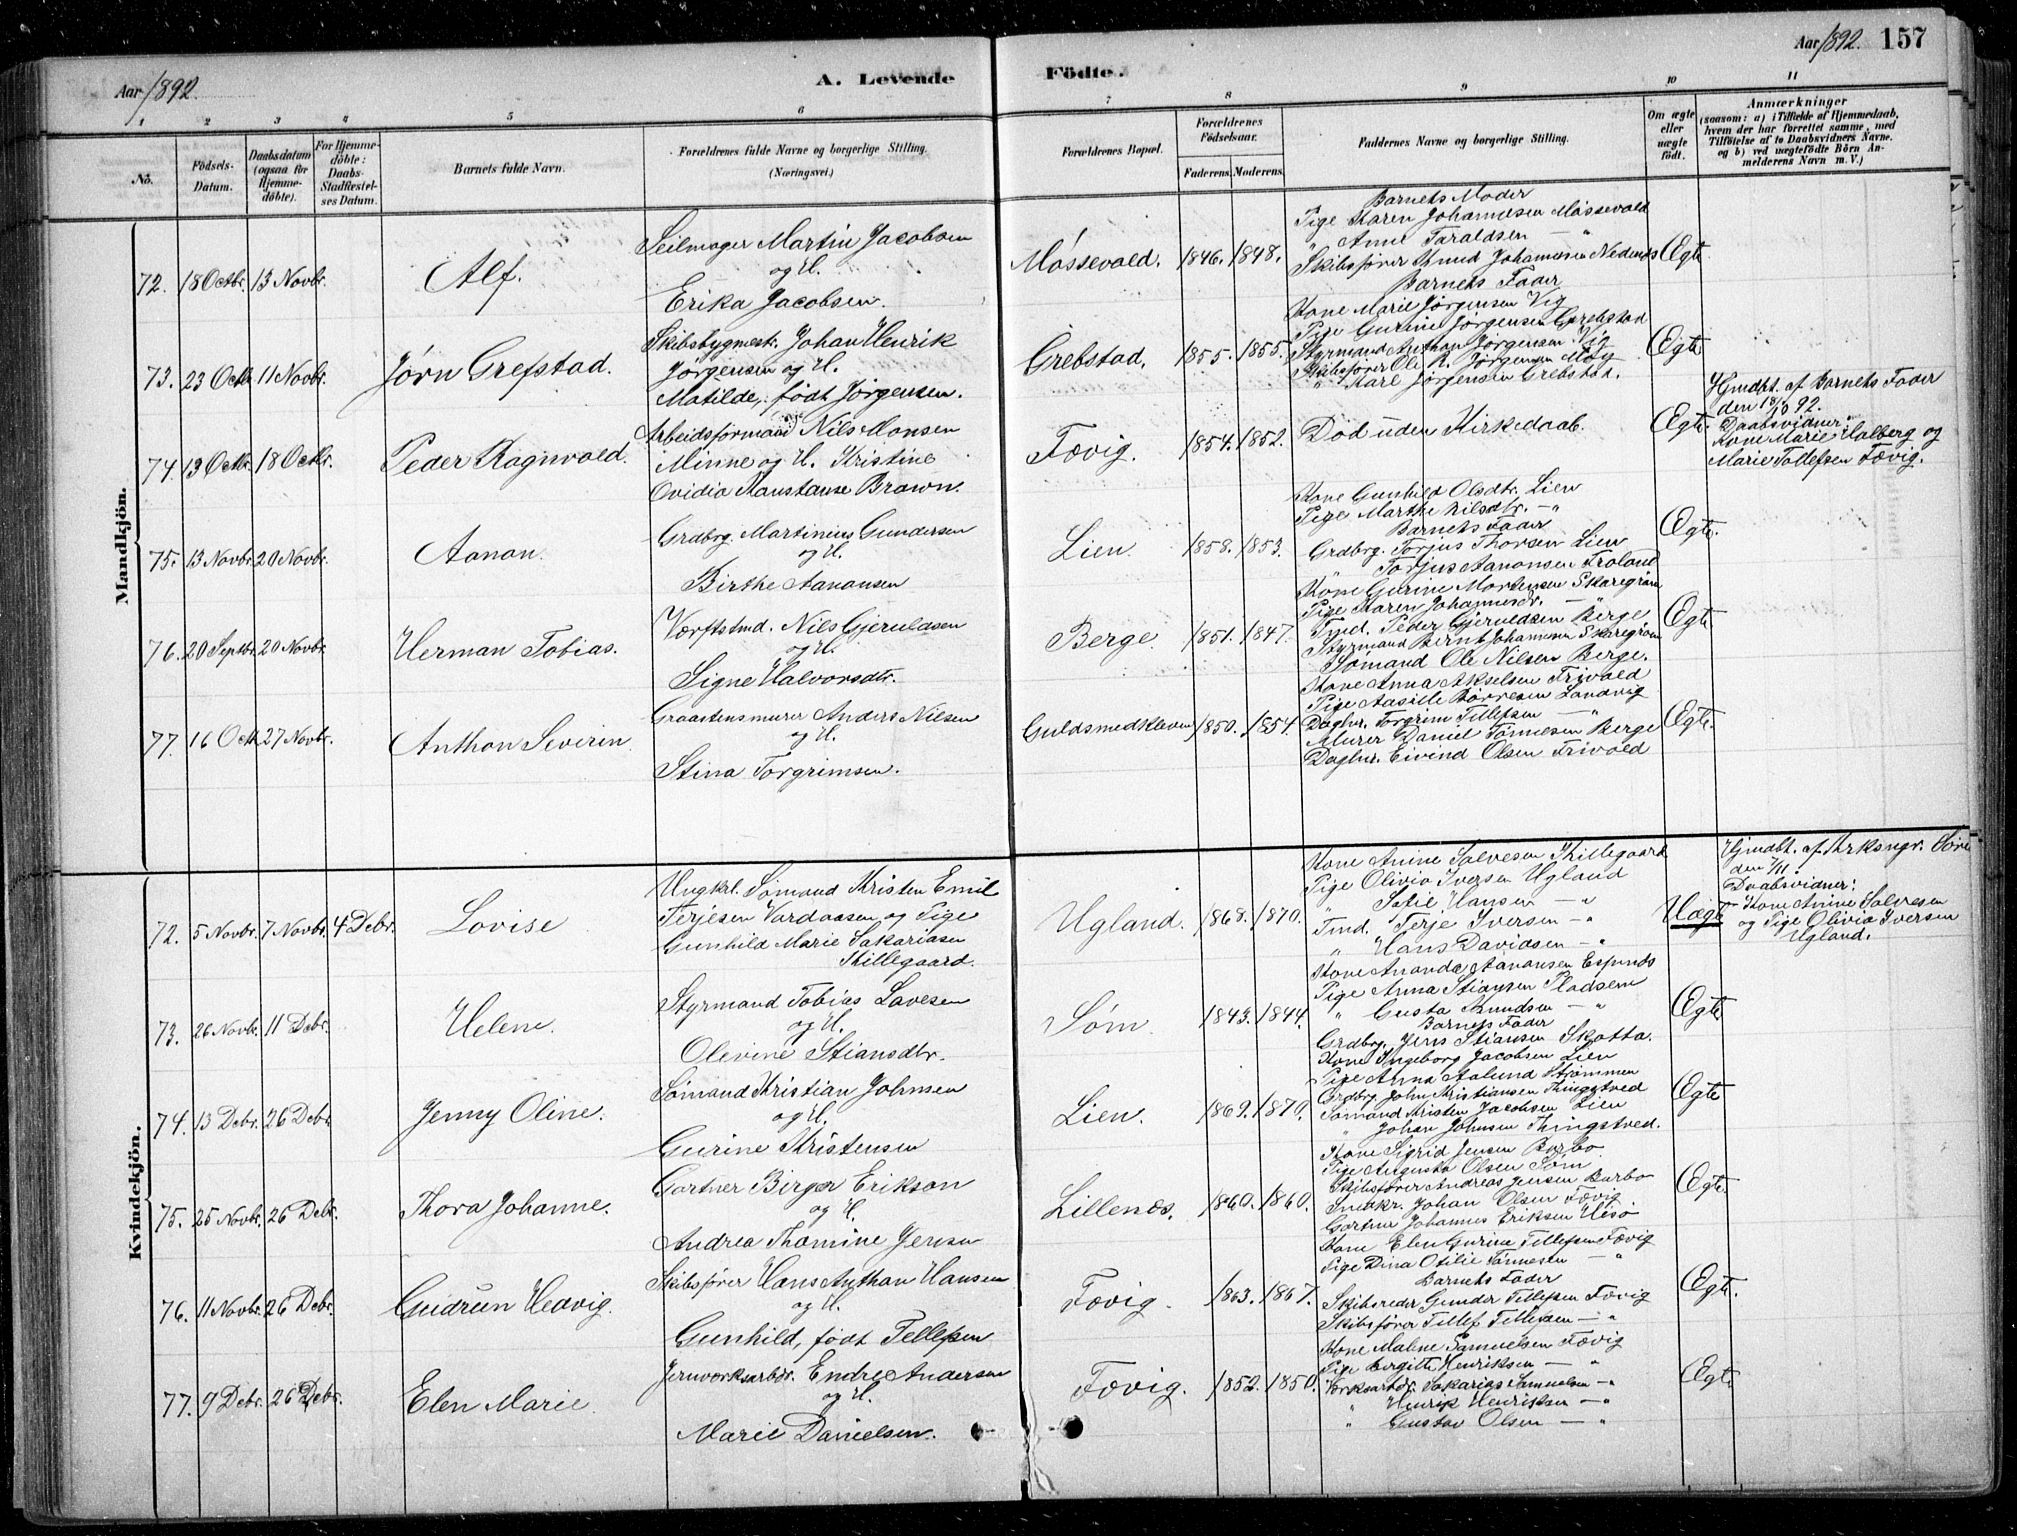 Aar 1892.
A. Levende Födte.
Aar 1892. 157
1 2 3 4 5 6 7 8 9 10 11
No.
Födsels-Datum.
Daabsdatum (ogsaa for Hjemmedöbte).
For Hjemmedöbte: Daabs-Stadfestelses Datum.
Barnets fulde Navn.
Forældrenes fulde Navne og borgerlige Stilling. (Næringsvei.)
Forældrenes Bopæl.
Forældrenes Födselsaar.
Faderens. Moderens.
Faddernes Navne og borgerlige Stilling.
Om ægte eller uægte födt.
Anmærkninger
(saasom: a) i Tilfælde af Hjemmedaab, hvem der har forrettet samme, med Tilföielse af to Daabsvidners Navne. og b) ved uægtefödte Börn Anmelderens Navn m. V.)
Mandkjön.
72. 18 Octbr. 13 Novbr. Alf.
Seilmager Martin Jacobsen
og H.
Erika Jacobsen.
Møssevold. 1846. 1848.
Barnets Moder
Pige Karen Johannesen Møssevold
" Anne Taraldsen — "
Skibsfører Knud Johannesen Nedenes
Barnets Fader
Ægte
73. 23 Octbr. 11 Novbr. Jørn Grefstad.
Skibsbygmestr. Johan Henrik
Jørgensen og H.
Matilde, født Jørgensen.
Grebstad. 1855. 1855.
Kone Marie Jørgensen Vig
Pige Gurine Jørgensen Grebstad
Styrmand Anthon Jørgensen Vig
Skibsfører Ole K. Jørgensen Møy
" Karl Jørgensen Grebstad.
Ægte
74. 13 Octbr. 18 Octbr. Peder Ragnvald.
Arbeidsformand Nils Monsen
Minne og H. Kristine
Ovidia Konstanse Brown.
Fævig. 1854. 1852.
Død uden Kirkedaab.
Ægte
Hjmdbt. af Barnets Fader
den 18/10 92.
Daabsvidner:
Kone Marie Holberg og
Marie Tollefsen Fævig.
75. 13 Novbr. 20 Novbr. Aanon.
Grdbrg. Martinius Gundersen
og H.
Birthe Aanonsen
Lien. 1858. 1853.
Kone Gunhild Olsdtr. Lien
Pige Marthe Nilsdtr. — "
Barnets Fader
Grdbrg. Torjus Thorsen Lien
Torjus Aanonsen Froland
Ægte.
76. 20 Septbr. 20 Novbr. Herman Tobias.
Værftstmd. Nils Gjeruldsen
og H.
Signe Halvorsdtr.
Berge. 1851. 1847.
Kone Gurine Mortensen Skaregrøm
Pige Karen Johannesdr. — "
Tmd. Peder Gjeruldsen Berge
Styrmand Bernt Johannesen Skaregrøm
Sømand Ole Nilsen Berge.
Ægte
77. 16 Octbr. 27 Novbr. Anthon Severin.
Graastensmurer Anders Nilsen
og H.
Stina Torgrimsen.
Guldsmedkleven 1850. 1854.
Kone Anna Akselsen Frivold
Pige Aasille Børresen Landvig
Daglnr. Torgrim Tellefsen — "
Murer Daniel Tønnesen Berge
Daglnr. Eivind Olsen Frivold
Ægte.
Kvindekjön.
72. 5 Novbr. 7 Novbr. 4 Debr. Lovise
Ungkrl. Sømand Kristen Emil
Terjesen Vardaasen og Pige
Gunhild Marie Sakariasen
Killegaard.
Ugland. 1868. 1870.
Kone Anine Salvesen Killegaard
Pige Olivia Iversen Ugland
" Sofie Hansen — "
Tmd. Terje Iversen — "
" Hans Davidsen — "
Uægte
Hjmdbt. af Kirksngr.
den 7/11.
Daabsvidner:
Kone Anine Salvesen
og Pige Olivia Iversen
Ugland.
73. 26 Novbr. 11 Debr. Helene.
Styrmand Tobias Lavesen
og H.
Olevine Stiansdtr.
Søm. 1843. 1844.
Kone Amanda Aanonsen Espenes
Pige Anna Stiansen Pladsen
" Gusta Knudsen — "
Barnets Fader
Grdbrg. Jens Stiansen Skotta.
Ægte
74. 13 Debr. 26 Debr. Jenny Oline.
Sømand Kristian Johnsen
og H.
Gurine Kristensen
Lien. 1869. 1870.
Kone Ingeborg Jacobsen Lien
Pige Anna Aslund Strømmen
Grdbrg. John Kristiansen Thingstved
Sømand Kristen Jacobsen Lien
" Johan Johnsen Thingstved.
Ægte
75. 25 Novbr. 26 Debr. Thora Johanne.
Gartner Birger Erikson
og H.
Andrea Thomine Jensen
Lillenæs. 1860. 1860.
Kone Sigrid Jensen Barbo
Pige Augusta Olsen Søm
Skibsfører Andreas Jensen Barbo
Snedkr. Johan Olsen Fævig.
Gartner Johannes Eriksen Hisø
Ægte.
76. 11 Novbr. 26 Debr. Gudrun Hedvig.
Skibsfører Hans Anthon Hansen
og H.
Gunhild, født Tellefsen
Fævig. 1863. 1867.
Kone Elen Gurine Tellefsen Fævig
Pige Dina Otilie Tønnesen — "
Barnets Fader
Skibsreder Gunder Tellefsen Fævig
Skibsfører Tellef Tellefsen — "
Ægte.
77. 9 Debr. 26 Debr. Elen Marie
Jernværksarbdr. Endre Andersen
og H.
Marie Danielsen.
Fævig. 1852. 1850.
Kone Malene Samuelsen Fævig
Pige Birgitte Henriksen — "
Værksarbdr. Sakarias Samuelsen — "
" Henrik Henriksen — "
" Gustav Olsen — "
Ægte.